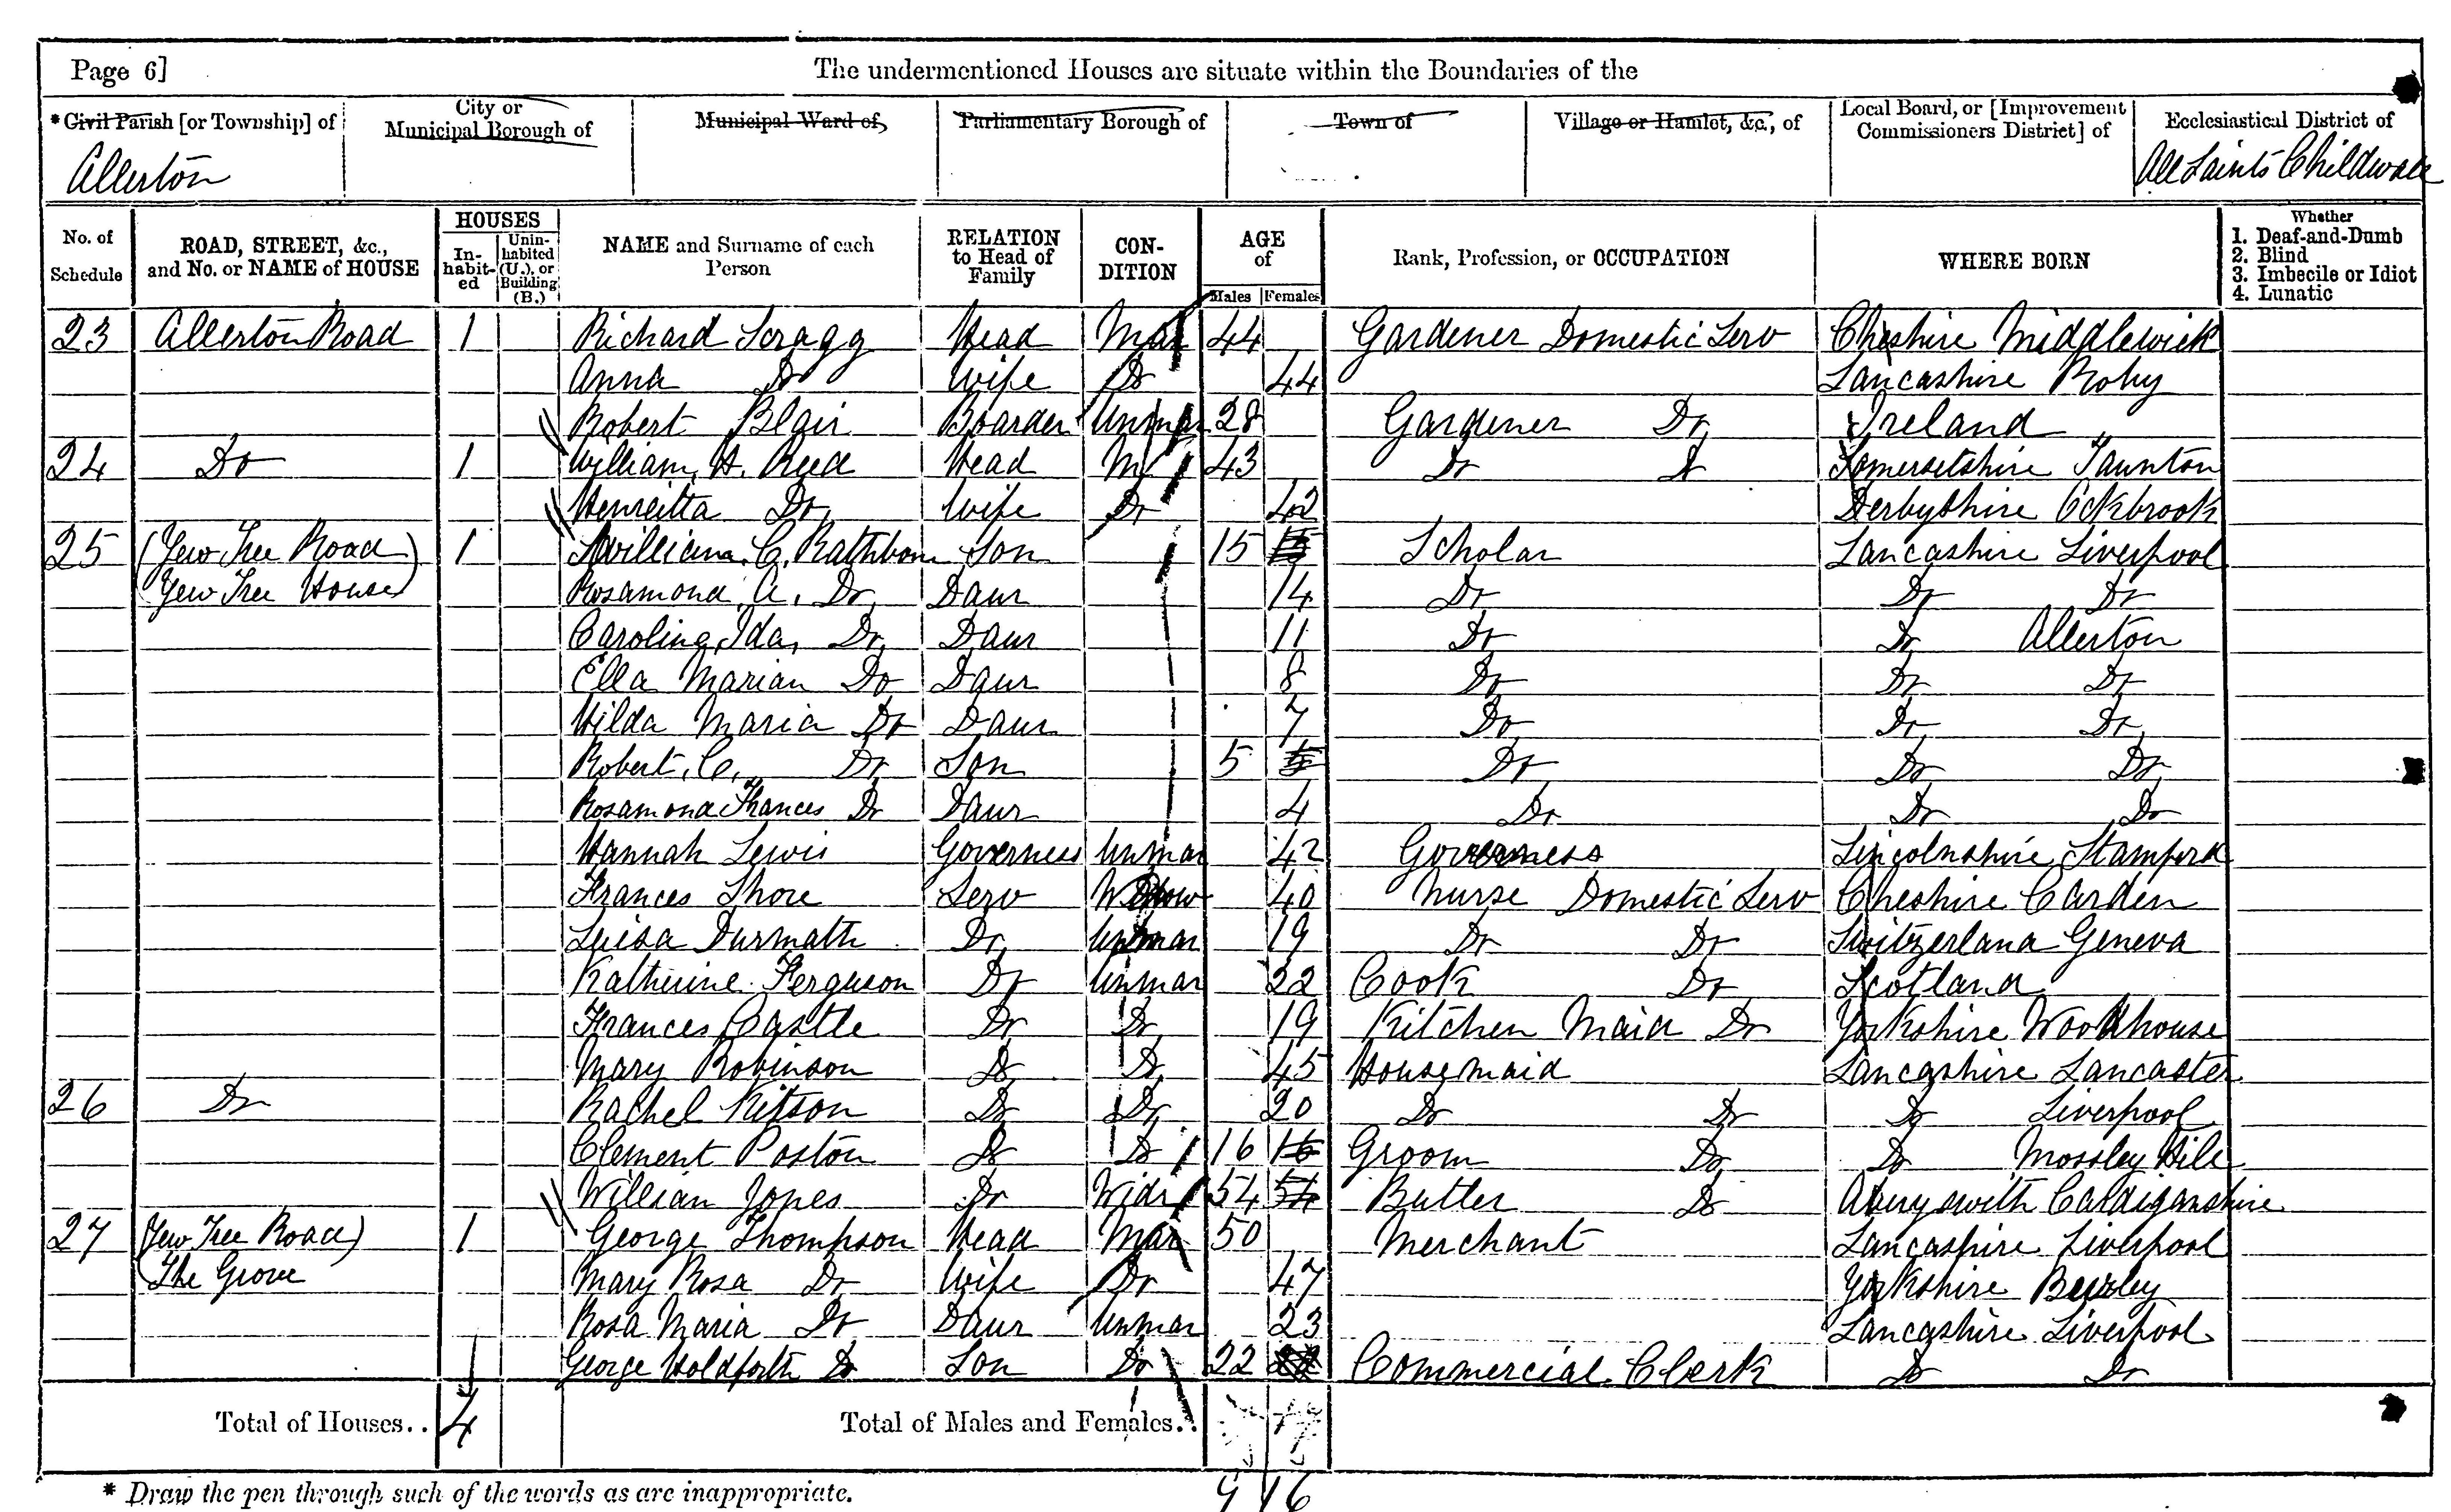 Page 6]
The undermentioned Houses are situate within the Boundaries of the
* Civil Parish [or Township] of
City or Municipal Borough of
Municipal Ward of
Parliamentary Borough of
Town of
Village or Hamlet, &c., of
Local Board, or [Improvement Commissioners District] of
Ecclesiastical District of
Allerton
All Saints Childwall
No. of Schedule
ROAD, STREET, &c., and No. or NAME of HOUSE
HOUSES
In-habit-ed
Unin-habited (U.), or Building (B.)
NAME and Surname of each Person
RELATION to Head of Family
CON-DITION
AGE of
Males Females
Rank, Profession, or OCCUPATION
WHERE BORN
Whether
1. Deaf-and-Dumb
2. Blind
3. Imbecile or Idiot
4. Lunatic
23 Allerton Road 1 Richard Scragg Head Mar 44 Gardener Domestic Serv Cheshire Middlewich
Anna Do Wife Do 44 Lancashire Roby
Robert Blair Boarder Unmar 28 Gardener Do Ireland
24 Do 1 William, H. Reed Head M 43 Do Do Somersetshire Taunton
Henreitta Do Wife Do 42 Derbyshire Ockbrook
25 (Yew Tree Road) 1 William. C. Rathbone Son 15 15 Scholar Lancashire Liverpool
(Yew Tree House) Rosamond. A. Do Daur 14 Do Do Do
Caroline, Ida, Do Daur 11 Do Do Allerton
Ella Marian Do Daur 8 Do Do Do
Hilda Maria Do Daur 7 Do Do Do
Robert, C. Do Son 5 5 Do Do Do
Rosamond Frances Do Daur 4 Do Do Do
Hannah Lewis Governess Unmar 42 Governess Lincolnshire Stamford
Frances Shore Serv Widow 40 Nurse Domestic Serv Cheshire Carden
Luisa Durmath Do Unmar 19 Do Do Switzerland Geneva
Katherine Ferguson Do Unmar 22 Cook Do Scotland
Frances Castle Do Do 19 Kitchen Maid Do Yorkshire Woodhouse
Mary Robinson Do Do 45 Housemaid Lancashire Lancaster
26 Do Rachel Kitson Do Do 20 Do Do Do Liverpool
Clement Poston Do Do 16 16 Groom Do Do Mossley Hill
William Jones Do Widr 54 54 Butler Do Aberyswith Cardiganshire
27 (Yew Tree Road) 1 George Thompson Head Mar 50 Merchant Lancashire Liverpool
(The Grove Mary Rosa Do Wife Do 47 Yorkshire Burley
Rosa Maria Do Daur Unmar 23 Lancashire Liverpool
George Holdforth Do Son Do 22 22 Commercial Clerk Do Do
Total of Houses.. 4 Total of Males and Females..
9 16
* Draw the pen through such of the words as are inappropriate.